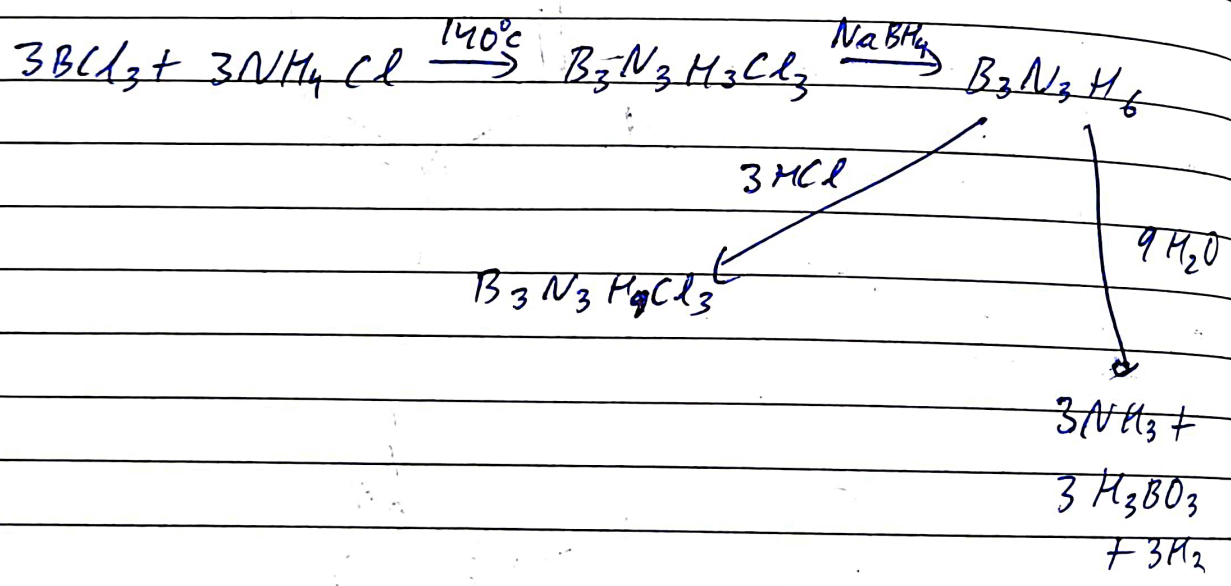 3BCl₃ + 3NH₄Cl →(140°c) B₃N₃H₃Cl₃ →(NaBH₄) B₃N₃H₆
3HCl
9H₂O
B₃N₃H₉Cl₃
3NH₃ +
3 H₃BO₃
+ 3H₂